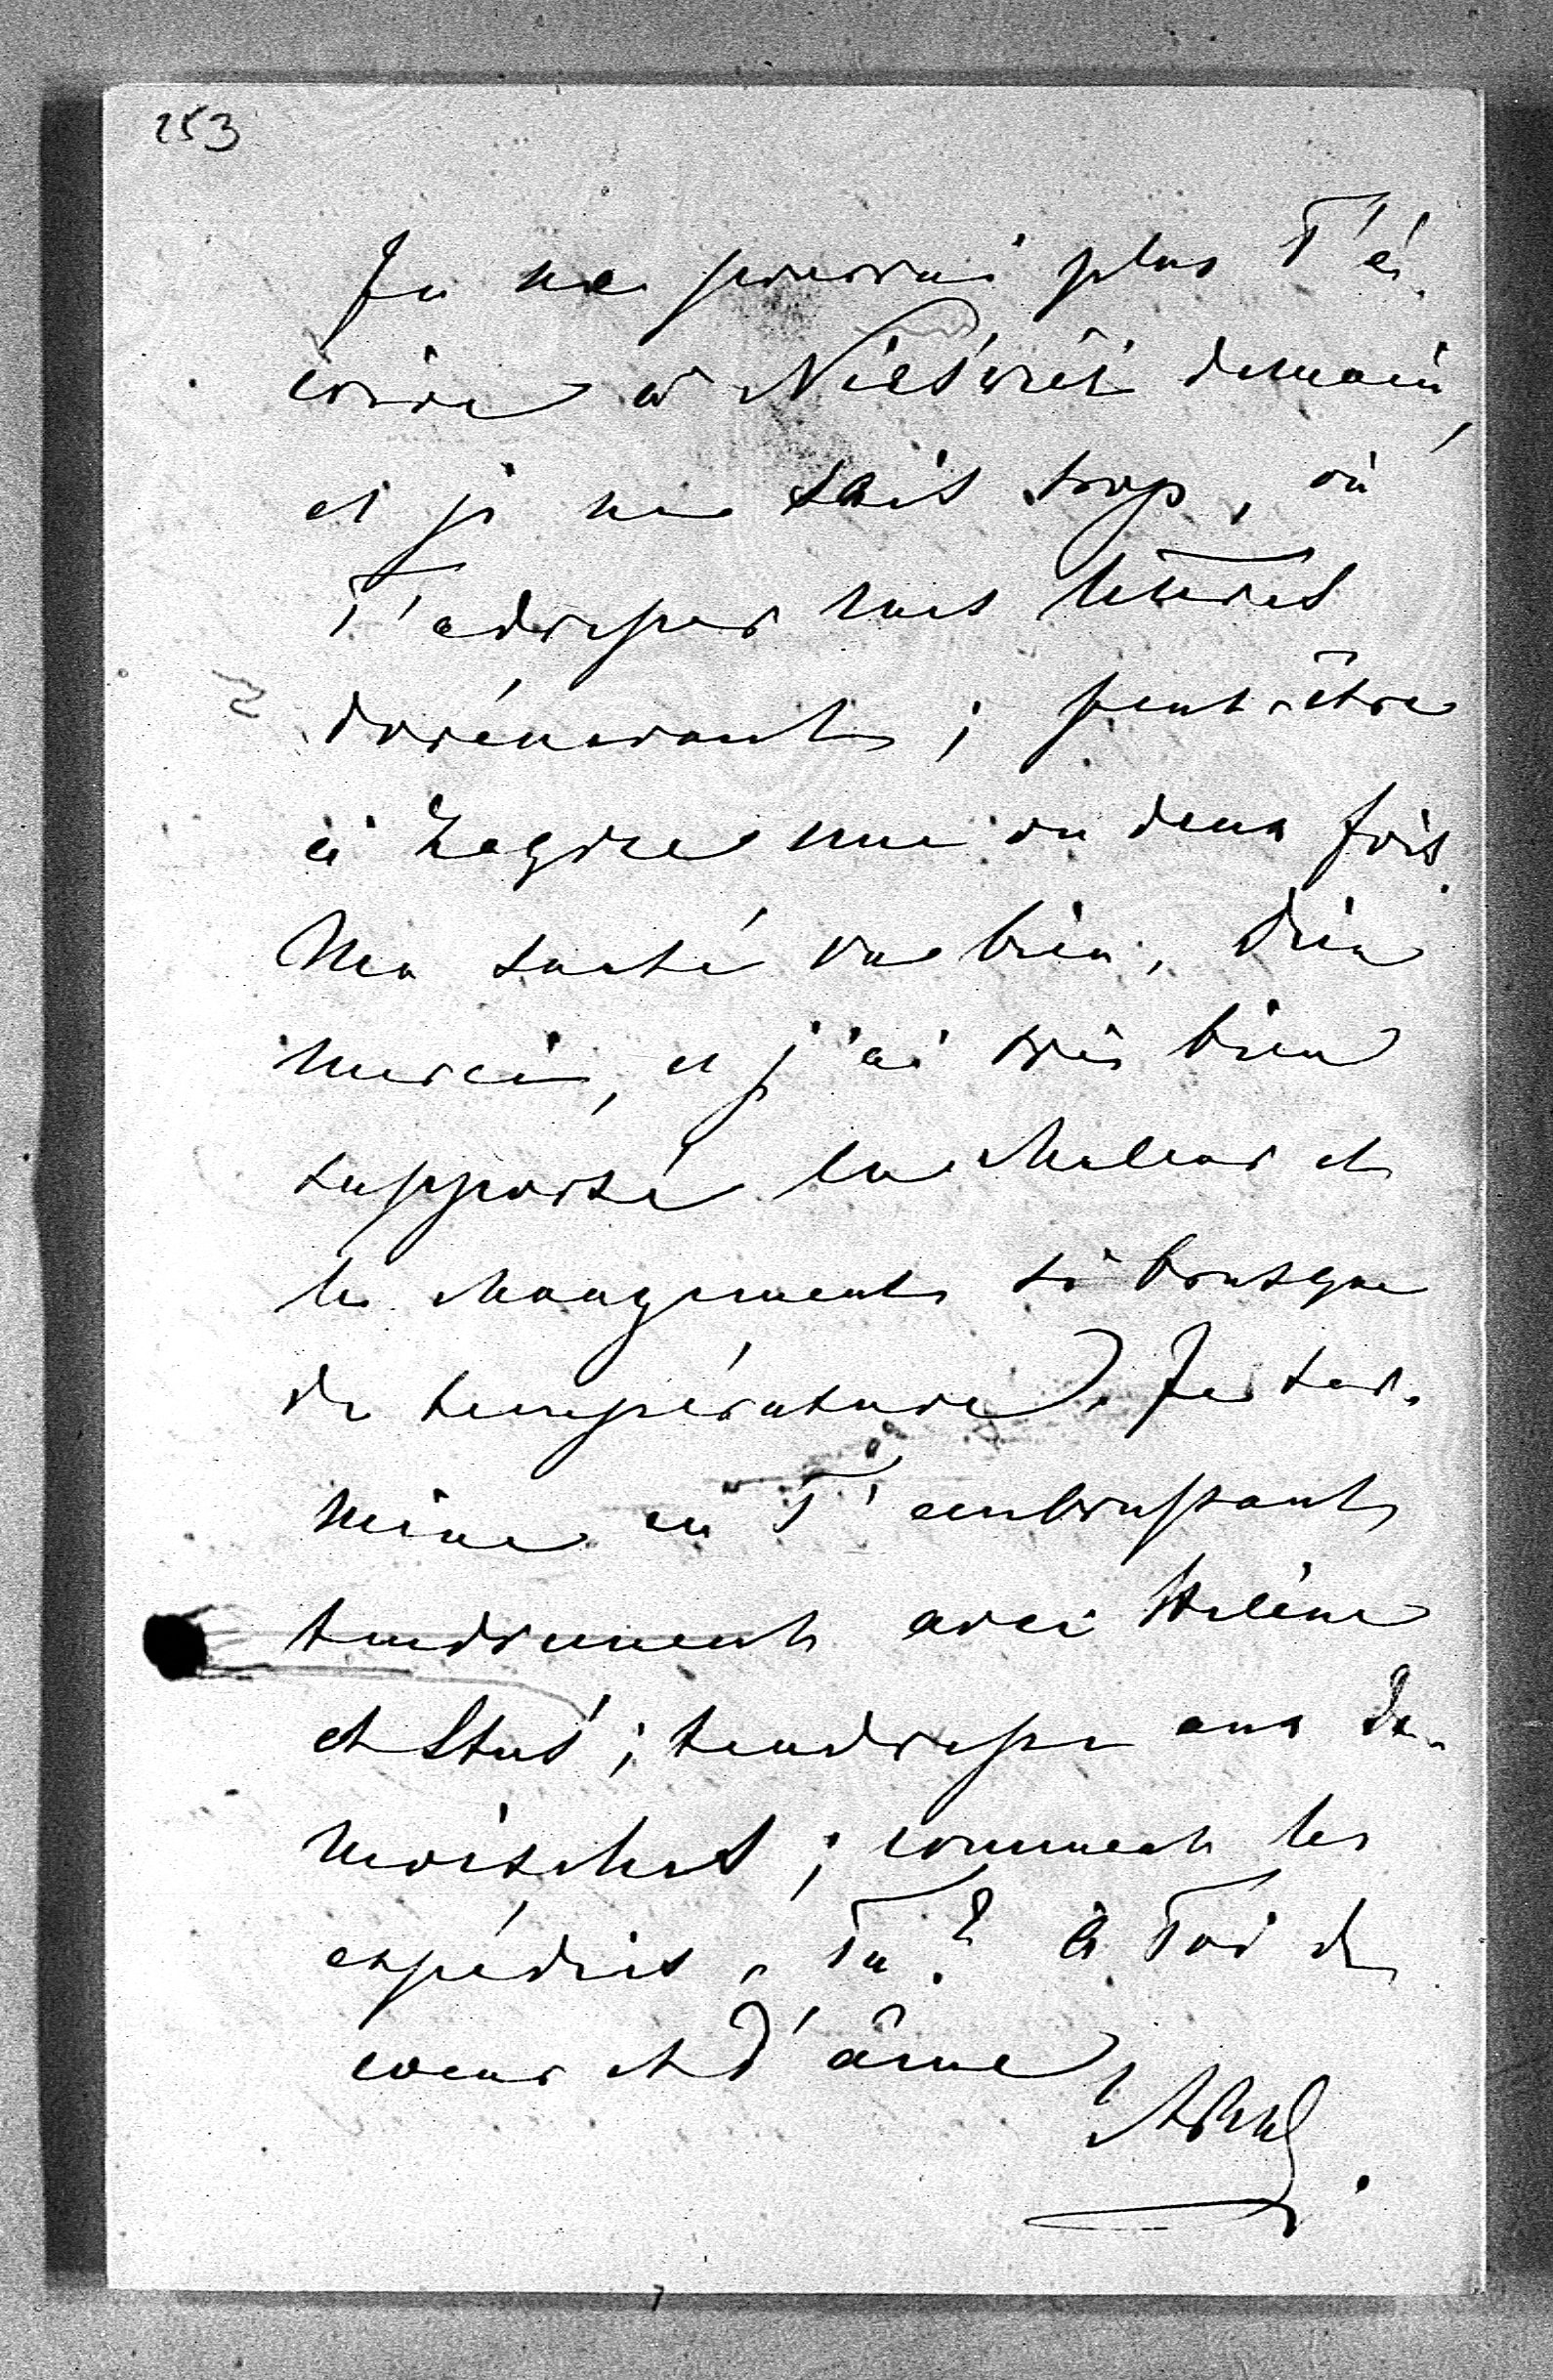 253
Je ne pourrai plus T'é-
crire à Nieśwież demain,
et je ne sais trop, où
T'adresser mes lettres
dorénavant; peut-être
à Zegrze une ou deux fois.
Ma santé va bien, Dieu
merci, et j'ai très bien
supporté la chaleur et
le changement si brusque
de température. Je ter-
mine en T'embrassant
tendrement avec Hélène
et Staś; tendresse aux De-
moiselles; comment les
expédies-Tu? à Toi de
coeur et d'âme